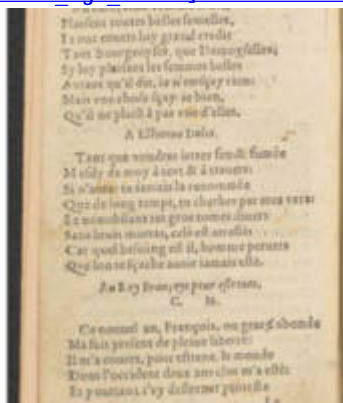 Plaisent toutes belles femelles,
Et ont envers luy grand credit
Tant Bourgeoyses, que Damoyselles;
Sy luy plaisent les femmes belles
Autant qu'il dit, ie n'en sçay rien:
Mais une chose sçay-ie bien,
Qu'il ne plaist à pas une d'elles.
A Estienne Dolet.
Tant que vouldras ietter feu & fumée
Mesdy de moy à tort & à travers:
Si n'auras tu iamais la renommée
Que de long temps, tu cherches par mes vers:
Et nonobstant tes gros tomes divers
Sans bruit mourras, cela est arresté:
Car quel besoing est il, homme pervers
Que lon te sçache avoir iamais esté.
Au Roy Françoys pour estrenes,
C. M.
Ce nouvel an, François, ou grace abonde
Ma fait present de pleine liberté:
Il m'a ouvert, pour estrene, le monde
Dont l'occident deux ans clos m'a esté:
Et pourtant i'ay